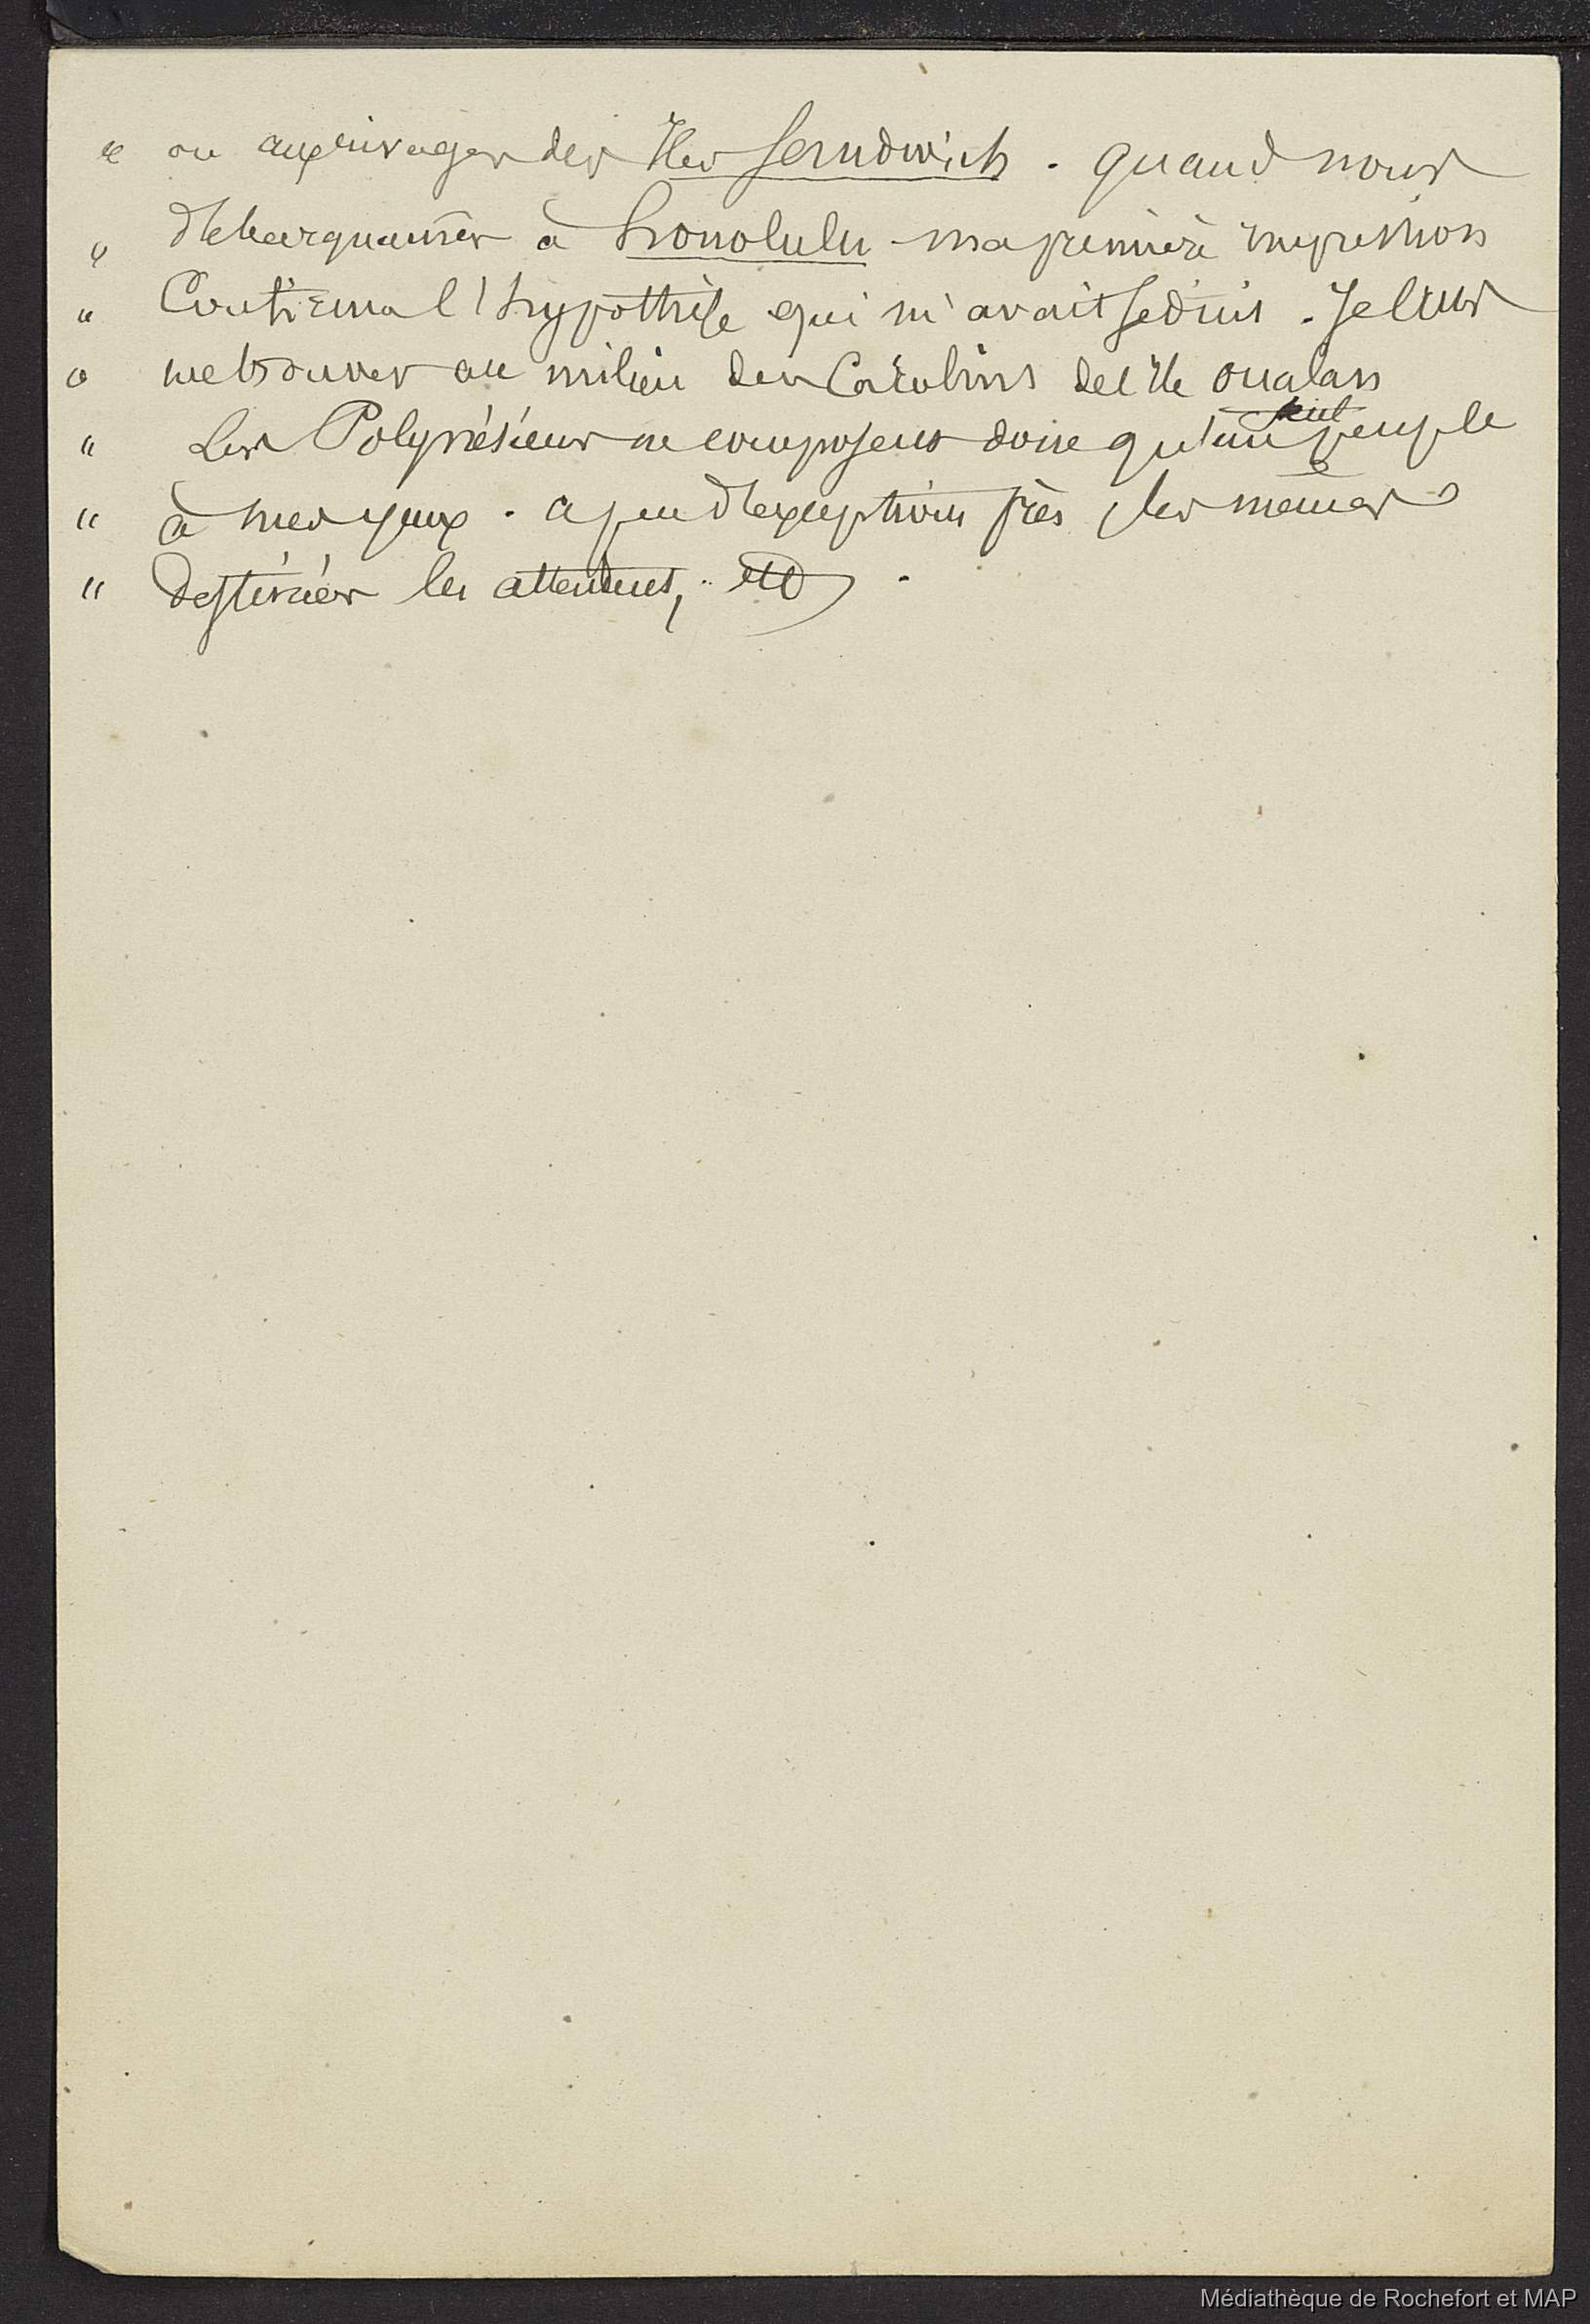 " ou aux rivages des Iles Sandwich. quand nous
" débarquames à honolulu ma première impression
" Confirma l'hypothèse qui m'avait seduit. Je crus
" me trouver au milieu des Carolins de l'Ile oualan
" Les Polynésiens ne composent donc qu'un seul peuple
" à mes yeux. a peu d'exceptions près, les mêmes
" destinées les attendent, etc.
Médiathèque de Rochefort et MAP